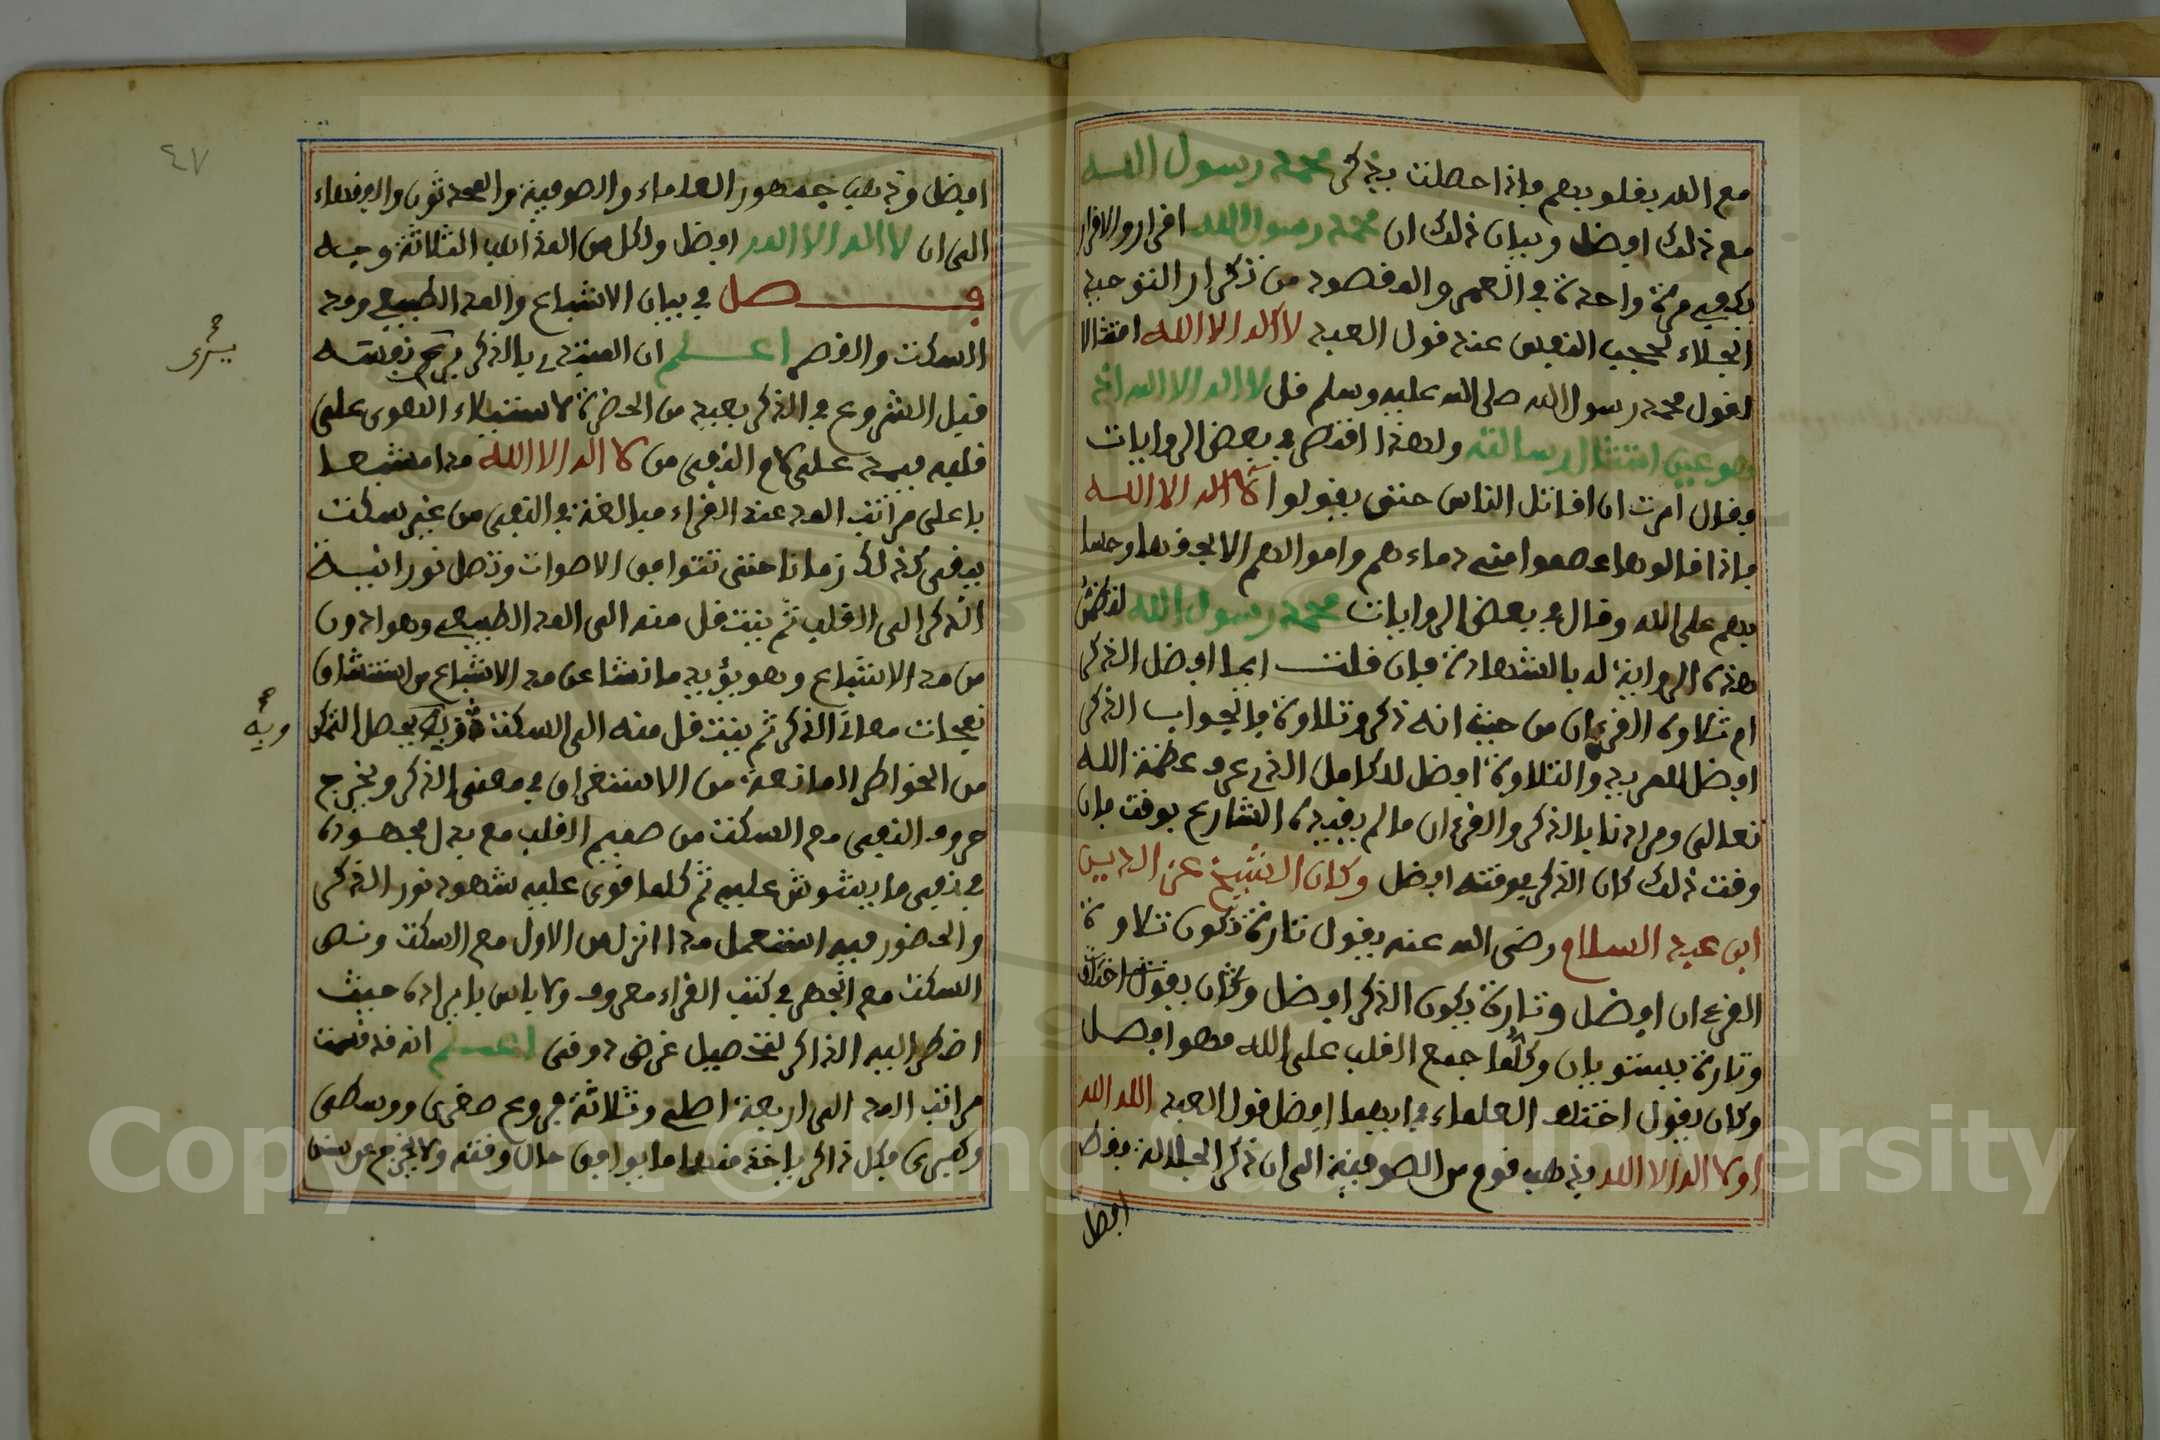 مع الله بقلوبهم فإذا حصلت بذكر محمد رسول الله
مع ذلك افضل وبيان ذلك ان محمد رسول الله اقرار والاقرار
يكفي مرة واحدة في العمر والمقصود من تكرار التوحيد
الجلاء لحجب النفس عند قول العبد لا اله الا الله امتثالا
لقول محمد رسول الله صلى الله عليه وسلم قل لا اله الا الله اذ
هو عين امتثال رسالته ولهذا اقتصر في بعض الروايات
وقال امرت ان اقاتل الناس حتى يقولوا لا اله الا الله
فإذا قالوها عصموا مني دماءهم واموالهم الا بحقها وحسا
بهم على الله وقال في بعض الروايات محمد رسول الله لتضمن
هذه الرواية له بالشهادة فان قلت ايما افضل الذكر
ام تلاوة القرءان من حيث انه ذكر وتلاوة فالجواب الذكر
افضل للمريد والتلاوة افضل للكامل الذي عرف عظمة الله
تعالى ومرادنا بالذكر والقرءان ما لم يقيده الشارع بوقت فان
وقت ذلك كان الذكر بوقته افضل وكان الشيخ عز الدين
ابن عبد السلام رضي الله عنه يقول تارة تكون تلاوة
القرءان افضل وتارة يكون الذكر افضل وكان يقول
وتارة يستويان وكلما جمع القلب على الله فهو افضل
وكان يقول اختلف العلماء في ايهما افضل قول العبد الله الله
او لا اله الا الله فذهب قوم من الصوفية الى ان ذكر الجلالة فقط
افضل
٤٧
افضل وذهب جمهور العلماء والصوفية والمحدثون والفقهاء
الى ان لا اله الا الله افضل ولكل من المذاهب الثلاثة وجه
فصل في بيان الاشباع والمد الطبيعي ومد
السكت والقصر اعلم ان المبتدي بالذكر يرى نفسه
قبل الشروع في الذكر بعيد من الحضرة لاستيلاء الهوى على
قلبه فيمد على لام النفي من لا اله الا الله مدا مشبعا
باعلى مراتب المد عند القراء مبالغة في النفي من غير سكت
يبقى كذلك زمانا حتى تتوافق الاصوات وتصل نورانية
الذكر الى القلب ثم ينتقل منه الى المد الطبيعي وهو ادون
من مد الاشباع وهو يؤيد ما نشا عن مد الاشباع من استنشاق
نفحات معاني الذكر ثم ينتقل منه الى السكت وبه يحصل التمكن
من الخواطر المانعة من الاستغراق في معنى الذكر ويخرج
حرف النفي مع السكت من صميم القلب مع بذل مجهوده
في نفي ما يشوش عليه ثم كلما قوى عليه شهود نور الذكر
والحضور فيه استعمل مدا انزل من الاول مع السكت ونص
السكت مع الجهر في كتب القراء معروف ولا باس بايراده حيث
اضطر اليه الذاكر لتحصيل غرض دوقي اعلم انه قد قسمت
مراتب المد الى اربعة اصلي وثلاثة فروع صغرى ووسطى
وكبرى فكل ذاكر ياخذ منها ما يوافق حال وقته ولا يخرج عن سنن
يرى
وبه
Copyright © King Saud University